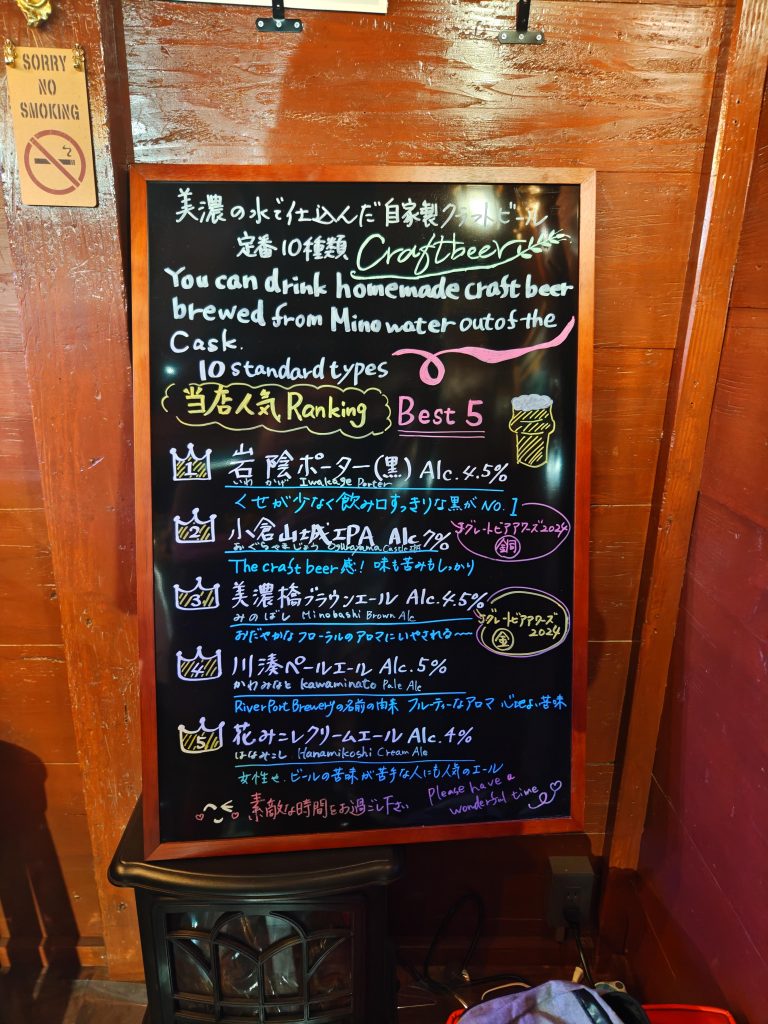 SORRY
NO
SMOKING
美濃の水で仕込んだ自家製クラフトビール
定番10種類 Craftbeer
You can drink homemade craft beer
brewed from Mino water out of the
Cask.
10 standard types
当店人気 Ranking Best 5
1 岩陰ポーター(黒) Alc.4.5%
いわ かげ Iwakage Porter
くせが少なく飲み口すっきりな黒がNO.1
2 小倉山城IPA Alc 7%
おぐらやまじょう Ogurayama Castle IPA
The craft beer感! 味も苦みもしっかり
Jグレートビアアワーズ2024
銅
3 美濃橋ブラウンエール Alc.4.5%
みのばし Minobashi Brown Ale
おだやかなフローラルのアロマにいやされる〜〜
Jグレートビアアワーズ
金 2024
4 川湊ペールエール Alc.5%
かわみなと Kawaminato Pale Ale
River Port Breweryの名前の由来 フルーティーなアロマ 心地よい苦味
5 花みこしクリームエール Alc.4%
はなみこし Hanamikoshi Cream Ale
女性や、ビールの苦味が苦手な人にも人気のエール
素敵な時間をお過ごし下さい
Please have a
wonderful time